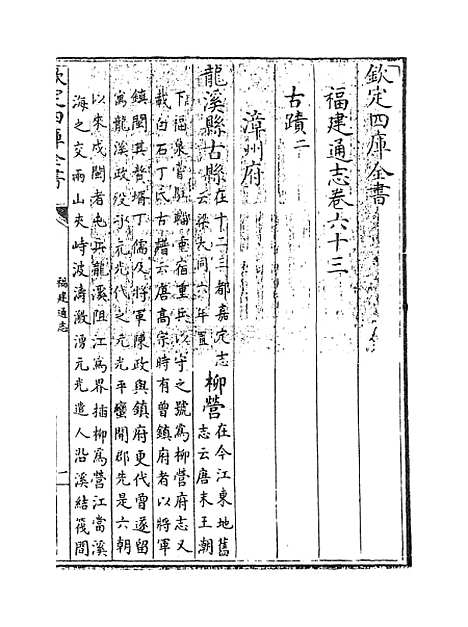 欽定四庫全書
福建通志卷六十三
古蹟二
漳州府
龍溪縣古縣在十二三都嘉定志云梁大同六年置柳營在今江東地舊志云唐末王朝
下福泉嘗駐輜重宿重兵以守之號為柳營府志又
載白石丁氏古譜云唐高宗時有曾鎮府者以將軍
鎮閩其贅壻丁儒及將軍陳政與鎮府更代曾遂留
寓龍溪政歿子元光代之元光平蠻開郡先是六朝
以來戍閩者屯兵龍溪阻江為界插柳為營江當溪
海之交兩山夾峙波濤激湧元光遣人沿溪結筏間
欽定四庫全書
福建通志
一